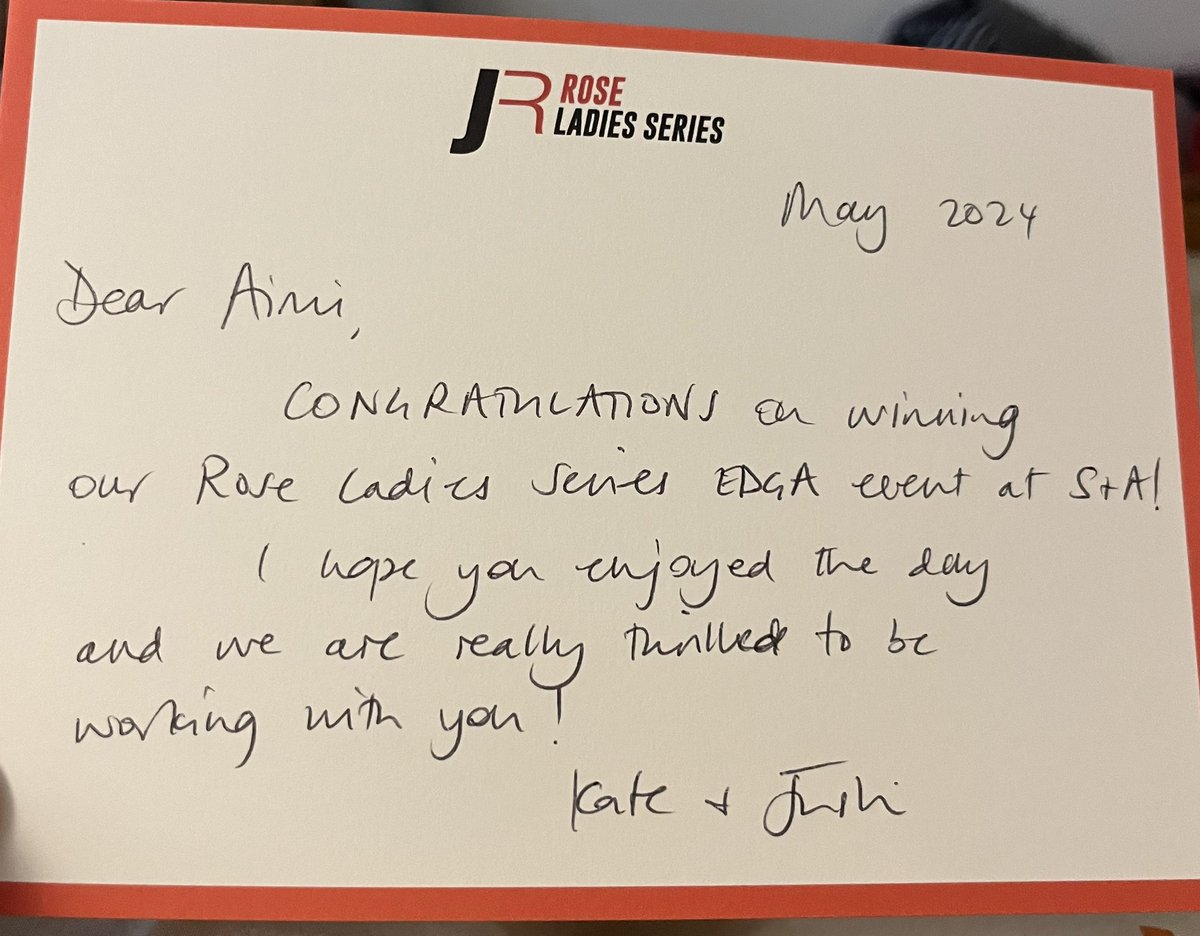 JR ROSE
LADIES SERIES
May 2024
Dear Aimi,
CONGRATULATIONS on winning
our Rose Ladies Series EDGA event at S+A!
I hope you enjoyed the day
and we are really thrilled to be
working with you!
Kate + Justin